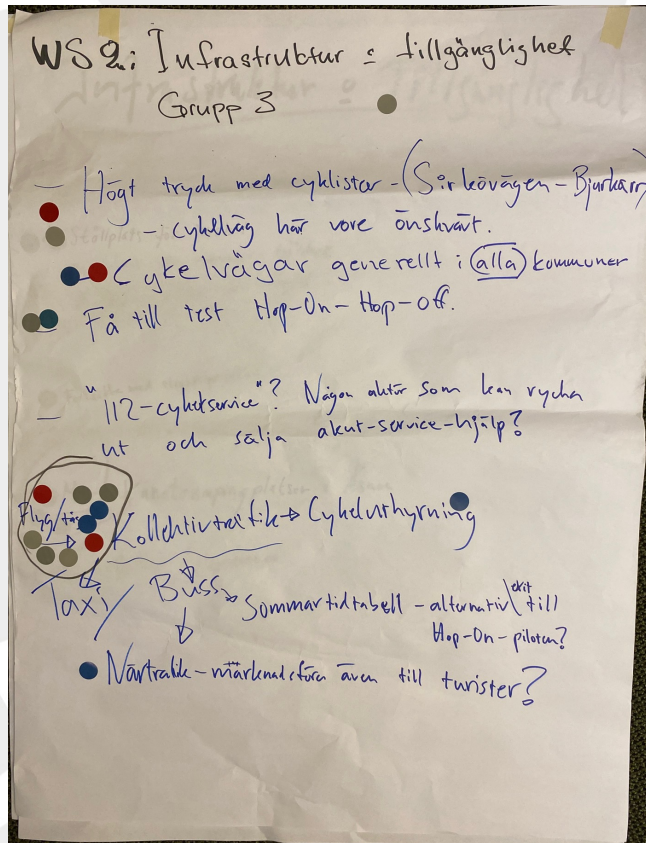 WS 2: Infrastruktur o tillgänglighet
Grupp 3
– Högt tryck med cyklister – (Sirkövägen – Bjurkärr)
– cykelväg här vore önskvärt.
Cykelvägar generellt i alla kommuner
Få till test Hop-On-Hop-off.
– "112-cykelservice"? Någon aktör som kan rycka
ut och sälja akut-service-hjälp?
Flyg/tåg
Kollektivtrafik → Cykeluthyrning
Taxi / Buss → Sommartidtabell – alternativ till
Hop-On-piloten?
Närtrafik – marknadsföra även till turister?